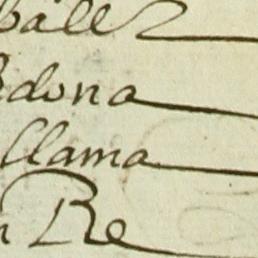 balez
dona
llama
n Re